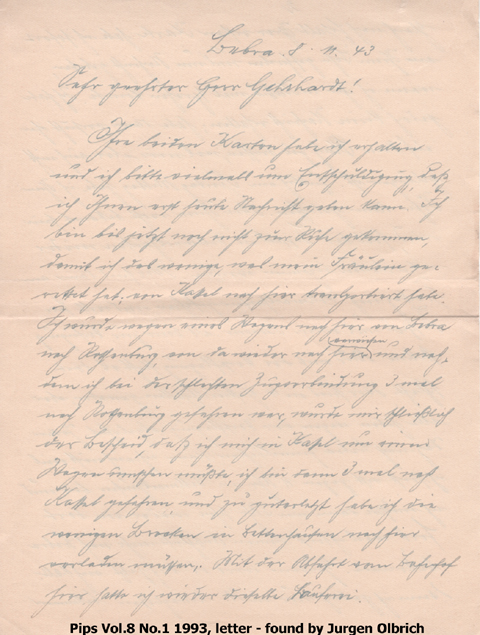 Bebra. 8. 11. 43
Sehr geehrter Herr Gehrhardt!
Ihre beiden Karten habe ich erhalten
und ich bitte vielmals um Entschuldigung, daß
ich Ihnen erst heute Nachricht geben kann. Ich
bin bis jetzt noch nicht zur Ruhe gekommen,
damit ich das wenige, was mein Fräulein ge-
rettet hat, von Kassel nach hier transportiert habe.
Ich wurde wegen eines Wagens nach hier von Bebra
nach Rothenburg von da wieder nach hier verwiesen und nach-
dem ich bei der schlechten Zugverbindung 3 mal
nach Rothenburg gefahren war, wurde mir schließlich
der Bescheid, daß ich mich in Kassel um einen
Wagen bemühen müßte, ich bin dann 3 mal nach
Kassel gefahren und zu guterletzt habe ich die
wenigen Brocken in Bettenhausen nach hier
verladen müssen. Mit der Abfahrt vom Bahnhof
hier hatte ich wieder dieselbe
Pips Vol.8 No.1 1993, letter - found by Jurgen Olbrich